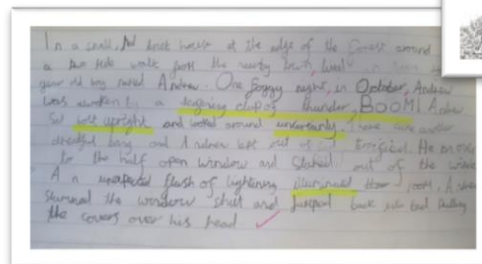 In a small, red brick house at the edge of the forest around
a two mile walk from the nearby town, lived
year old boy named Andrew. One foggy night, in October, Andrew
was awoken by a deafening clap of thunder, BOOM! Andrew
Sat bolt upright and looked around uncertainly. There was another
dreadful bang and Andrew leapt out of
to the half open window and Stared out of the window
A n unexpected flash of lightening illuminated room. Andrew
slammed the window shut and jumped back into bed Pulling
the covers over his head